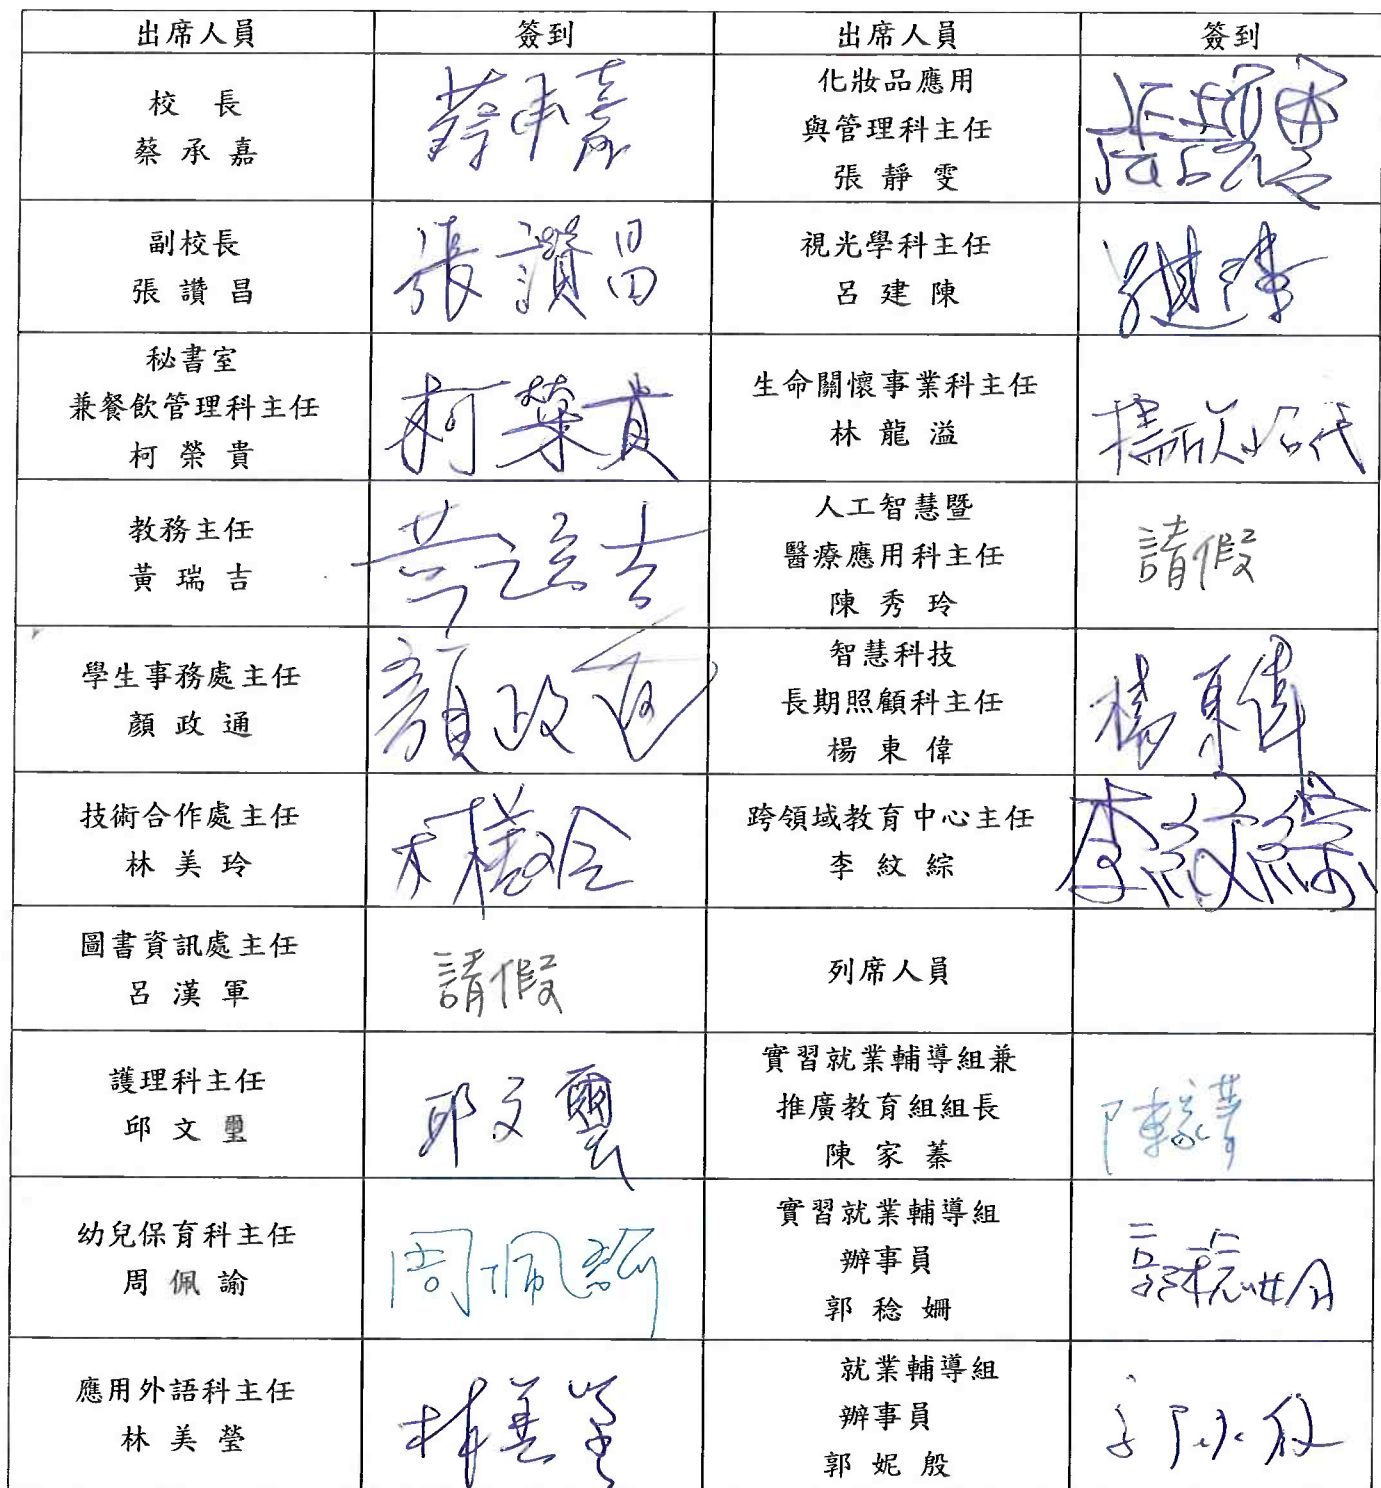 出席人員 簽到 出席人員 簽到
校長
蔡承嘉
蔡承嘉
化妝品應用
與管理科主任
張靜雯
副校長
張讚昌
張讚昌
視光學科主任
呂建陳
秘書室
兼餐飲管理科主任
柯榮貴
柯榮貴
生命關懷事業科主任
林龍溢
教務主任
黃瑞吉
黃瑞吉
人工智慧暨
醫療應用科主任
陳秀玲
請假
學生事務處主任
顏政通
顏政通
智慧科技
長期照顧科主任
楊東偉
楊東偉
技術合作處主任
林美玲
林美玲
跨領域教育中心主任
李紋綜
李紋綜
圖書資訊處主任
呂漢軍
請假
列席人員
護理科主任
邱文璽
邱文璽
實習就業輔導組兼
推廣教育組組長
陳家蓁
陳家蓁
幼兒保育科主任
周佩諭
周佩諭
實習就業輔導組
辦事員
郭稔姍
應用外語科主任
林美瑩
林美瑩
就業輔導組
辦事員
郭妮殷